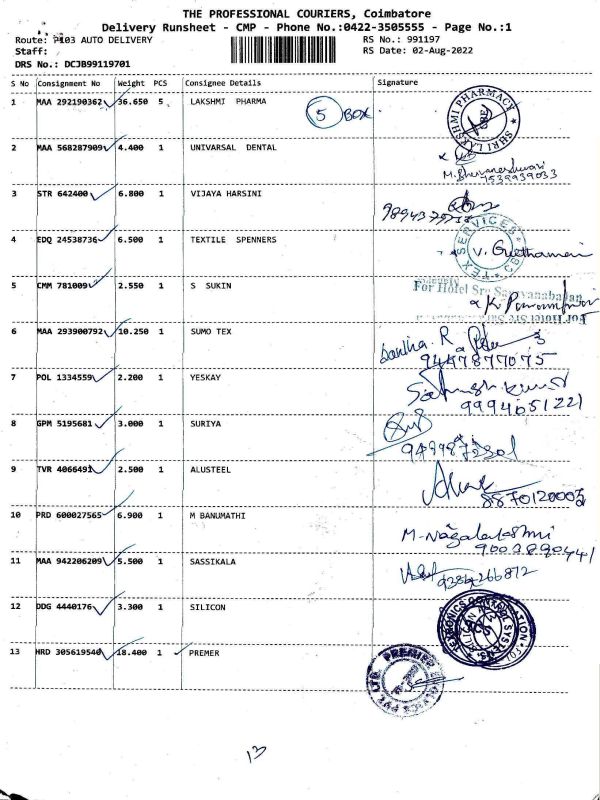 THE PROFESSIONAL COURIERS, Coimbatore
Delivery Runsheet - CMP - Phone No.:0422-3505555 - Page No.:1
Route: P103 AUTO DELIVERY RS No.: 991197
Staff: RS Date: 02-Aug-2022
DRS No.: DCJB99119701
S No Consignment No Weight PCS Consignee Details Signature
1 MAA 292190362 36.650 5 LAKSHMI PHARMA 5 BOX SHRI LAKSHMI PHARMACY CBE
2 MAA 568287909 4.400 1 UNIVARSAL DENTAL
M. Bhuvaneshwari
1539939033
3 STR 642400 6.800 1 VIJAYA HARSINI
4 EDQ 24538736 6.500 1 TEXTILE SPENNERS TEX SERVICES
5 CMM 781009 2.550 1 S SUKIN
For Hotel Sree
6 MAA 293900792 10.250 1 SUMO TEX
9447877075
7 POL 1334559 2.200 1 YESKAY
Sathish kumar
9994051221
8 GPM 5195681 3.000 1 SURIYA
9 TVR 4066491 2.500 1 ALUSTEEL
8870120003
10 PRD 600027565 6.900 1 M BANUMATHI
M-Nagalakshmi
11 MAA 942206209 5.500 1 SASSIKALA
9384266812
12 DDG 4440176 3.300 1 SILICON
13 HRD 305619540 18.400 1 PREMER PREMIER PVT LTD
13